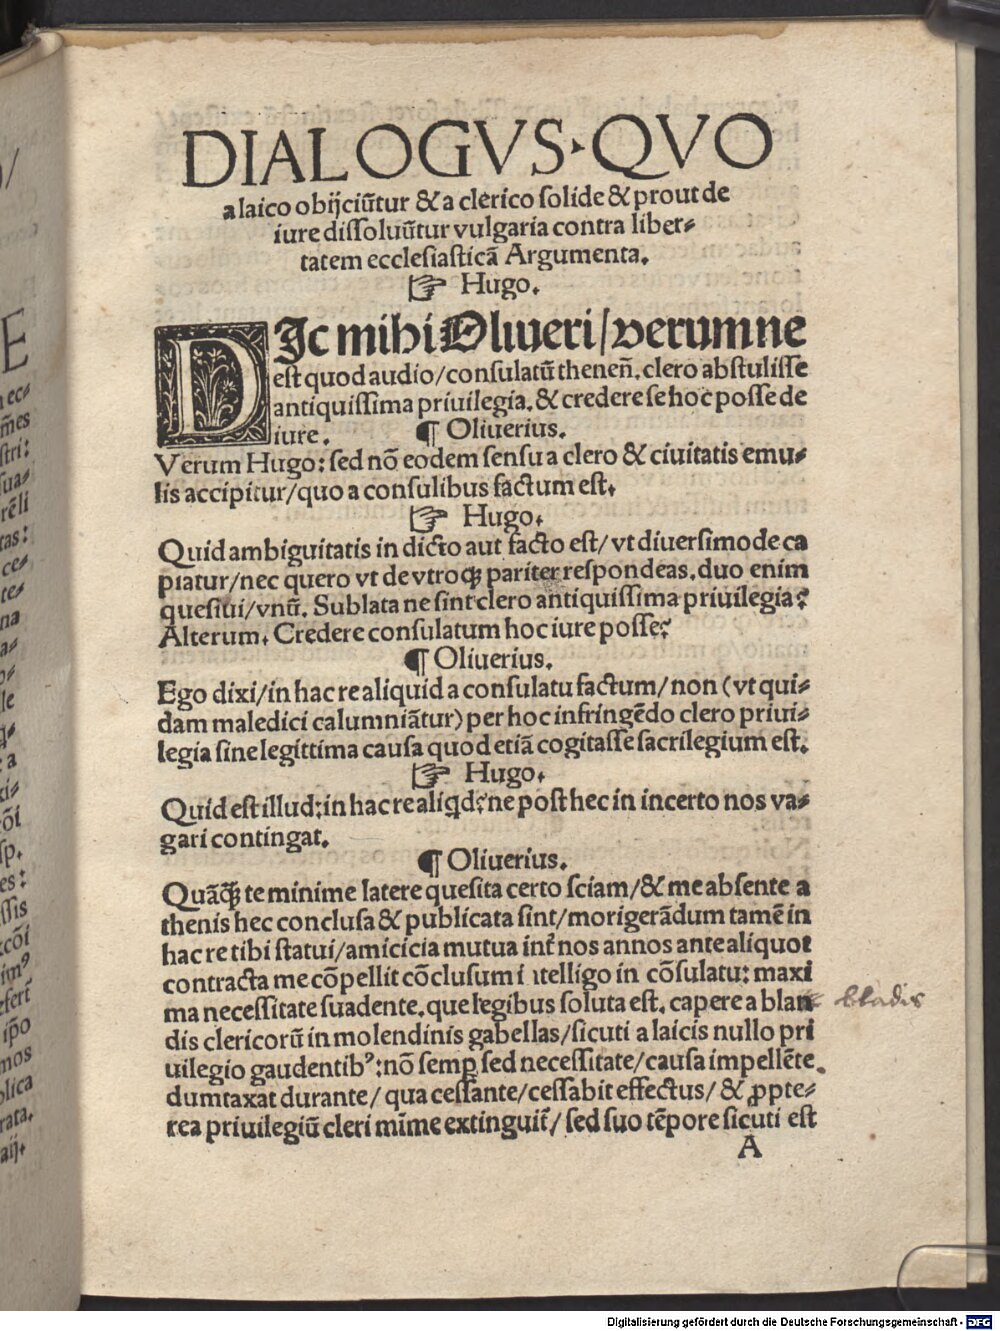 DIALOGVS·QVO
a laico obijciūtur & a clerico solide & prout de
iure dissoluūtur vulgaria contra liber⸗
tatem ecclesiasticā Argumenta.
☞ Hugo.
DIc mihi Oliueri/verumne
est quod audio/consulatū thenen̄. clero abstulisse
antiquissima priuilegia. & credere se hoc posse de
iure. ¶ Oliuerius.
Verum Hugo: sed nō eodem sensu a clero & ciuitatis emu⸗
lis accipitur/quo a consulibus factum est.
☞ Hugo.
Quid ambiguitatis in dicto aut facto est/ vt diuersimode ca
piatur/nec quero vt de vtroqꝫ pariter respondeas. duo enim
quesiui/vnū. Sublata ne sint clero antiquissima priuilegia?
Alterum. Credere consulatum hoc iure posse?
¶ Oliuerius.
Ego dixi/in hac re aliquid a consulatu factum/non (vt qui⸗
dam maledici calumniātur) per hoc infringēdo clero priui⸗
legia sine legittima causa quod etiā cogitasse sacrilegium est.
☞ Hugo.
Quid est illud: in hac re aliqd? ne post hec in incerto nos va⸗
gari contingat.
¶ Oliuerius.
Quāqꝫ te minime latere quesita certo sciam/& me absente a
thenis hec conclusa & publicata sint/morigerādum tamē in
hac re tibi statui/amicicia mutua int̄ nos annos ante aliquot
contracta me cōpellit cōclusum i ntelligo in cōsulatu: maxi
ma necessitate suadente. que legibus soluta est. capere a blan bladis
dis clericorū in molendinis gabellas/sicuti a laicis nullo pri
uilegio gaudentibꝰ: nō semꝑ sed necessitate/causa impellēte.
dumtaxat durante/ qua cessante/cessabit effectus/ & ꝓpte⸗
rea priuilegiū cleri mīme extinguit̄/ sed suo tēpore sicuti est
A
ec⸗
m̄es
stri:
sua⸗
rēli
tas:
ce⸗
te⸗
na
a⸗
le
a
ōi
sp.
es:
ssis
cōi
imꝰ
fert̄
ip̄o
mos
blica
rata.
aij.
Digitalisierung gefördert durch die Deutsche Forschungsgemeinschaft - DFG